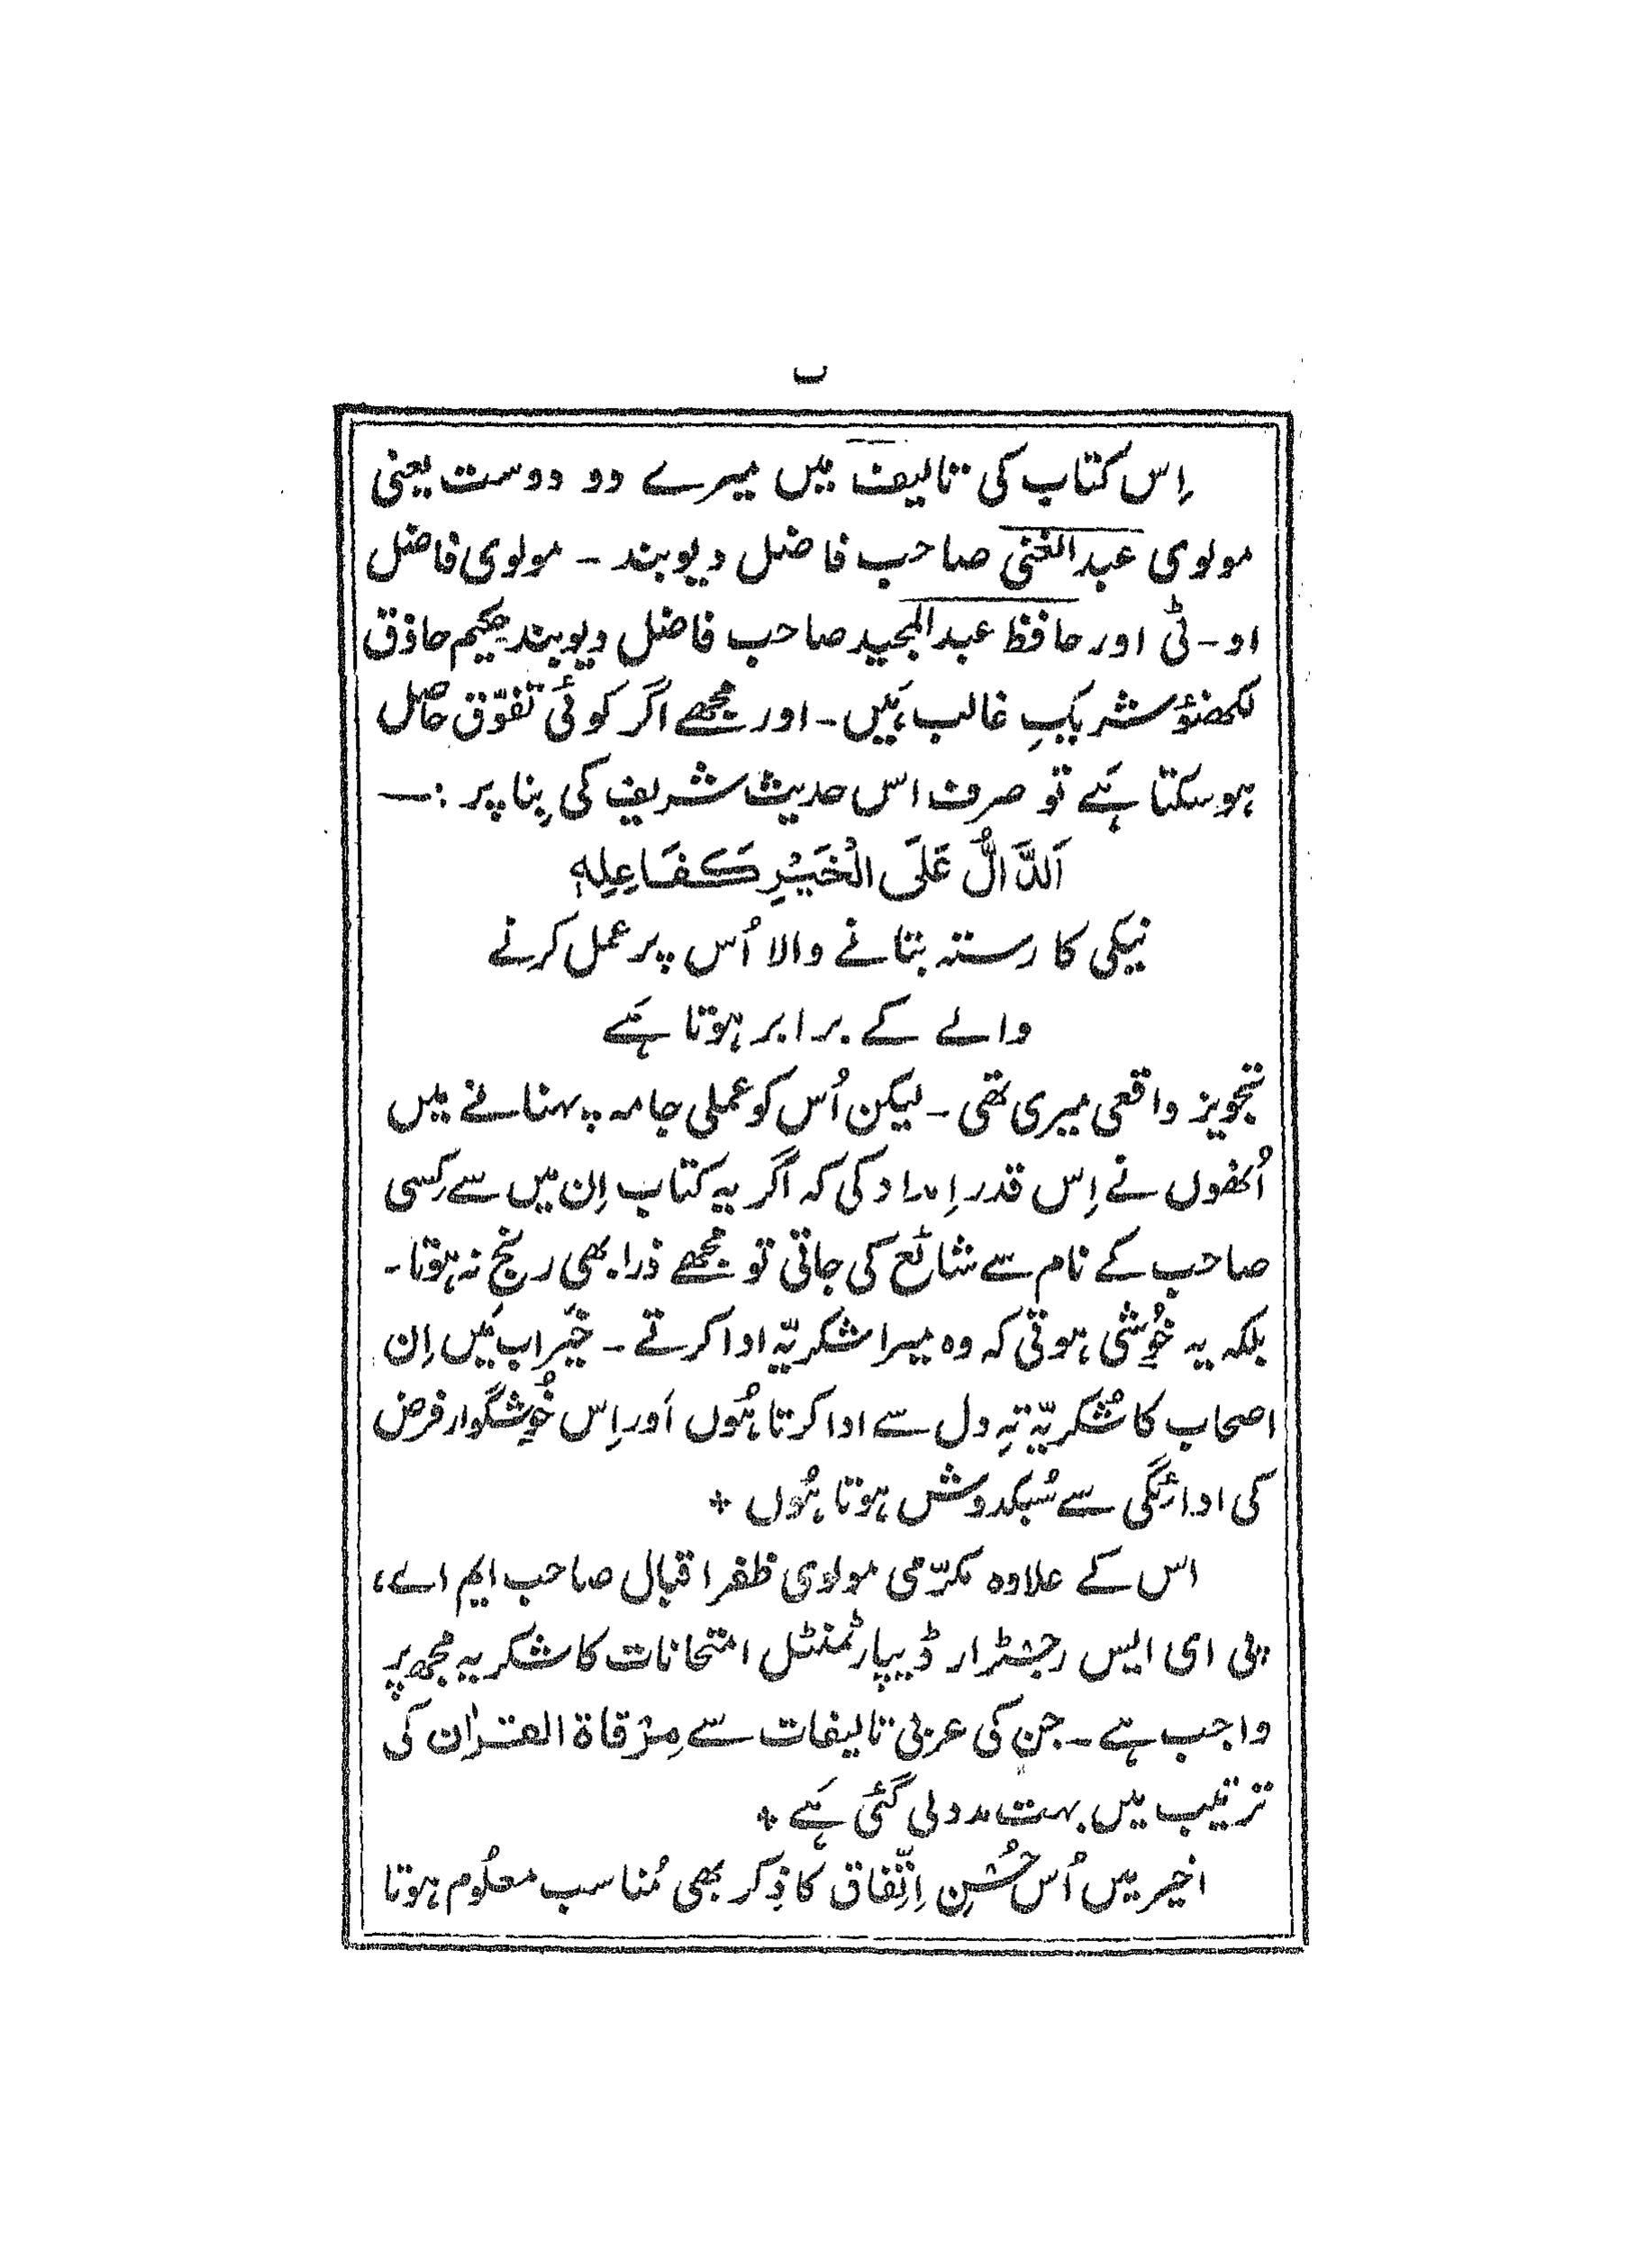 ب
اِس کتاب کی تالیف میں میرے دو دوست یعنی
مولوی عبدالغنی صاحب فاضل دیوبند ۔ مولوی فاضل
او ۔ ٹی اور حافظ عبدالمجید صاحب فاضل دیوبند حکیم حاذق
لکھنؤ شریکِ غالب ہَیں ۔ اور مجھے اگر کوئی تفوّق حاصل
ہوسکتا ہَے تو صرف اس حدیث شریف کی بِنا پر :—
اَلدَّالُّ عَلَی الْخَیْرِ کَفَاعِلِهٖ
نیکی کا رستہ بتانے والا اُس پر عمل کرنے
والے کے برابر ہوتا ہَے
تجویز واقعی میری تھی ۔ لیکن اُس کو عملی جامہ پہنانے میں
اُنھوں نے اِس قدر اِمداد کی کہ اگر یہ کتاب اِن میں سے کِسی
صاحب کے نام سے شائع کی جاتی تو مجھے ذرا بھی رنج نہ ہوتا ۔
بلکہ یہ خُوشی ہوتی کہ وہ میرا شکریّہ ادا کرتے ۔ خَیر اب مَیں اِن
اصحاب کا شُکریّہ تہِ دل سے ادا کرتا ہُوں اَور اِس خُوشگوار فرض
کی ادائگی سے سُبکدوش ہوتا ہُوں +
اس کے علاوہ مکرّمی مولوی ظفر اقبال صاحب ایم اے،
پی ای ایس رجسٹرار ڈیپارٹمنٹل امتحانات کا شکریہ مجھ پر
واجب ہے ۔ جن کی عربی تالیفات سے مِرْقاۃ القرْان کی
ترتیب میں بہت مدد لی گئی ہَے +
اخیر میں اُس حُسْنِ اِتِّفاق کا ذِکر بھی مُناسب معلُوم ہوتا